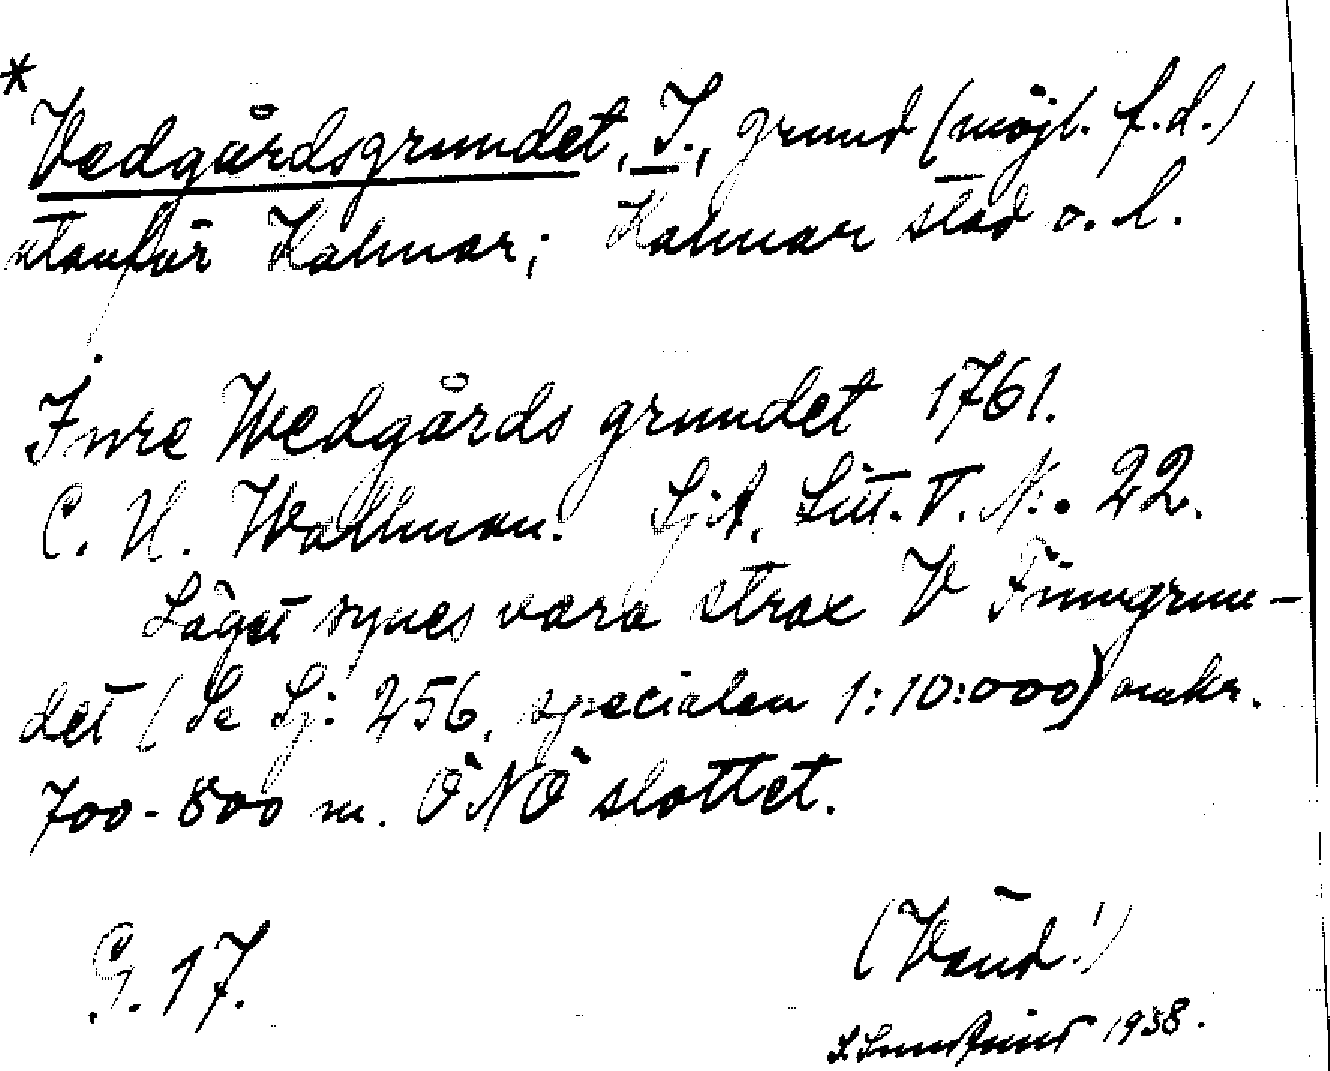 * Vedgårdsgrundet, I., grund (möjl. f.d.)
utanför Kalmar; Kalmar stad o. l.
Inre Wedgårds grundet 1761.
C. U. Wallman. SjA. Litt. T. N:o 22.
Läget synes vara strax V Finngrun-
det (Se Sj: 256, specialen 1:10:000) omkr.
700-800 m. ÖNÖ slottet.
G. 17.
(Vänd!)
1938.